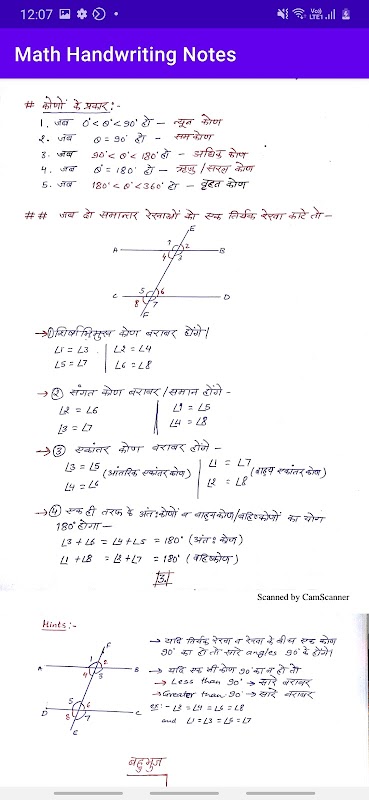 12:07
Vo))
LTE1
Math Handwriting Notes
# कोणों के प्रकार :-
1. जब 0° < θ° < 90° हो — न्यून कोण
2. जब θ = 90° हो — समकोण
3. जब 90° < θ° < 180° हो — अधिक कोण
4. जब θ° = 180° हो — ऋजु / सरल कोण
5. जब 180° < θ° < 360° हो — वृहत कोण
## जब दो समान्तर रेखाओं को एक तिर्यक रेखा काटे तो —
E
1 2
A B
4 3
5 6
C D
8 7
F
→ ① शीर्षाभिमुख कोण बराबर होंगे।
∠1 = ∠3 ∠2 = ∠4
∠5 = ∠7 ∠6 = ∠8
→ ② संगत कोण बराबर / समान होंगे -
∠2 = ∠6 ∠1 = ∠5
∠3 = ∠7 ∠4 = ∠8
→ ③ एकांतर कोण बराबर होंगे -
∠3 = ∠5 (आंतरिक एकांतर कोण) ∠1 = ∠7 (बाह्य एकांतर कोण)
∠4 = ∠6 ∠2 = ∠8
→ ④ एक ही तरफ के अंतःकोणों व बाह्यकोण/बहिष्कोणों का योग
180° होगा —
∠3 + ∠6 = ∠4 + ∠5 = 180° (अंतः कोण)
∠1 + ∠8 = ∠2 + ∠7 = 180° (बहिष्कोण)
131
Scanned by CamScanner
Hints :-
F
1 2
A B
4 3
5 6
D C
8 7
E
→ यदि तिर्यक रेखा व रेखा के बीच एक कोण
90° का हो तो सारे angles 90° के होंगे।
→ यदि एक भी कोण 90° का न हो तो
→ Less than 90° → सारे बराबर
→ Greater than 90° → सारे बराबर
eg:- ∠2 = ∠4 = ∠6 = ∠8
and ∠1 = ∠3 = ∠5 = ∠7
बहुभुज